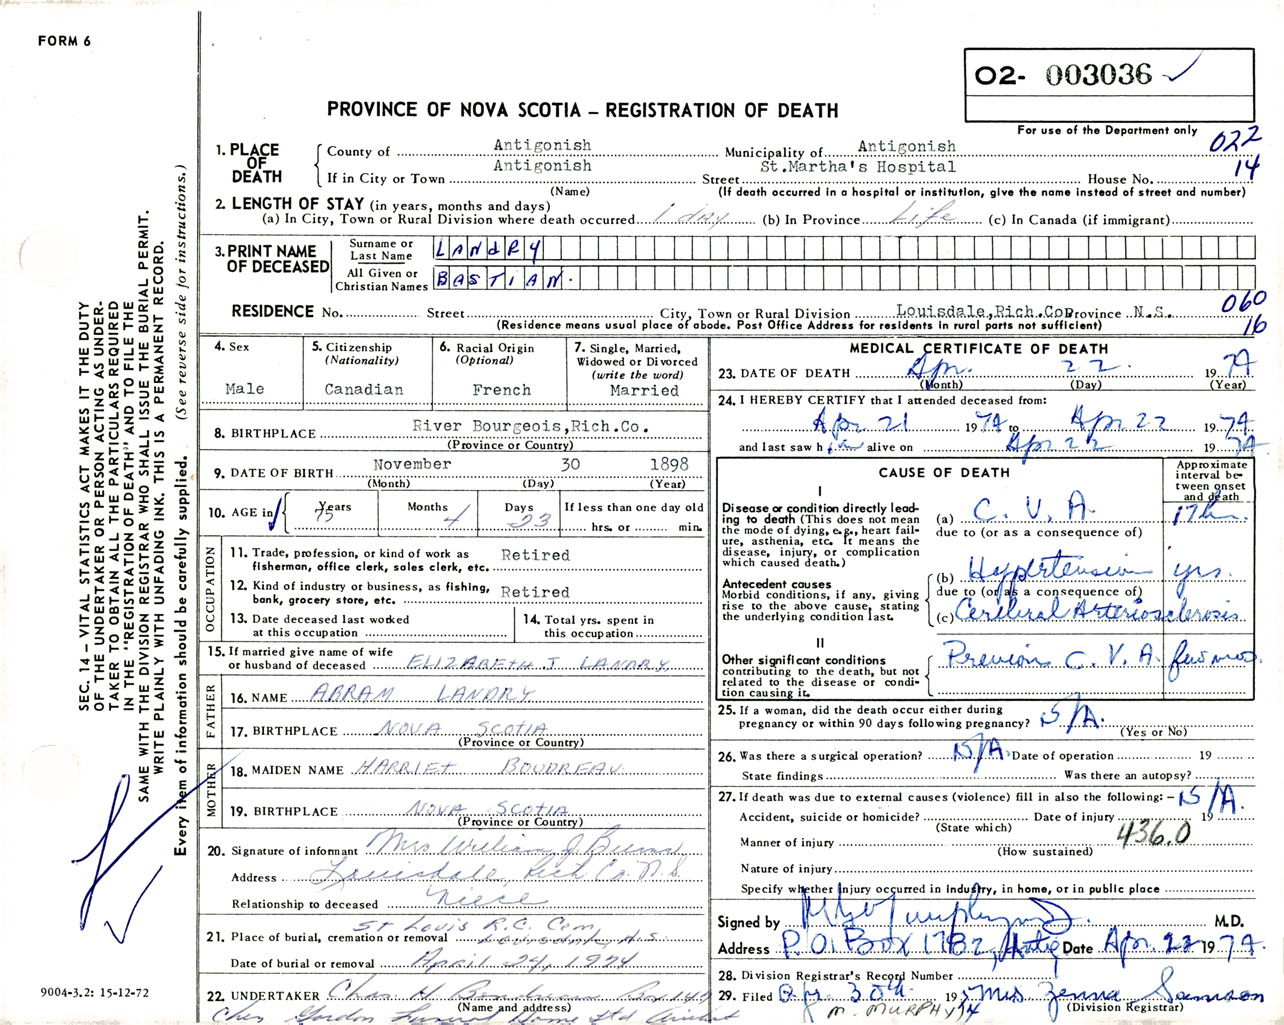 FORM 6
O2- 003036
PROVINCE OF NOVA SCOTIA – REGISTRATION OF DEATH
For use of the Department only
022
14
1. PLACE OF DEATH
County of Antigonish Municipality of Antigonish
If in City or Town Antigonish Street St.Martha's Hospital House No.
(Name) (If death occurred in a hospital or institution, give the name instead of street and number)
2. LENGTH OF STAY (in years, months and days)
(a) In City, Town or Rural Division where death occurred 1 day (b) In Province Life (c) In Canada (if immigrant)
3. PRINT NAME OF DECEASED
Surname or Last Name LANDRY
All Given or Christian Names BASTIAN.
RESIDENCE No. Street City, Town or Rural Division Louisdale,Rich.Co Province N.S.
(Residence means usual place of abode. Post Office Address for residents in rural parts not sufficient)
060
16
4. Sex
Male
5. Citizenship
(Nationality)
Canadian
6. Racial Origin
(Optional)
French
7. Single, Married,
Widowed or Divorced
(write the word)
Married
8. BIRTHPLACE River Bourgeois,Rich.Co.
(Province or Country)
9. DATE OF BIRTH November 30 1898
(Month) (Day) (Year)
10. AGE in Years 75 Months 4 Days 23
If less than one day old
hrs. or min.
OCCUPATION
11. Trade, profession, or kind of work as
fisherman, office clerk, sales clerk, etc. Retired
12. Kind of industry or business, as fishing,
bank, grocery store, etc. Retired
13. Date deceased last worked
at this occupation
14. Total yrs. spent in
this occupation
15. If married give name of wife
or husband of deceased ELIZABETH J LANDRY.
FATHER
16. NAME ABRAM LANDRY
17. BIRTHPLACE NOVA SCOTIA
(Province or Country)
MOTHER
18. MAIDEN NAME HARRIET BOUDREAU
19. BIRTHPLACE NOVA SCOTIA
(Province or Country)
20. Signature of informant Mrs William J
Address Louisdale, Rich Co. N.S.
Relationship to deceased Niece
St Louis R.C. Cem
21. Place of burial, cremation or removal Louisdale, N.S.
Date of burial or removal April 24, 1974
22. UNDERTAKER Chas. H Boudreau Box 147
(Name and address)
Gordon Funeral Home Ltd
MEDICAL CERTIFICATE OF DEATH
23. DATE OF DEATH Apr. 22 1974
(Month) (Day) (Year)
24. I HEREBY CERTIFY that I attended deceased from:
Apr 21 1974 to Apr 22 1974
and last saw him alive on Apr 22 1974
CAUSE OF DEATH
Approximate
interval be-
tween onset
and death
I
Disease or condition directly lead-
ing to death (This does not mean
the mode of dying, e.g., heart fail-
ure, asthenia, etc. It means the
disease, injury, or complication
which caused death.)
(a) C.V.A. 17 hr.
due to (or as a consequence of)
Antecedent causes
Morbid conditions, if any, giving
rise to the above cause, stating
the underlying condition last.
(b) Hypertension yrs.
due to (or as a consequence of)
(c) Cerebral Arteriosclerosis
II
Other significant conditions
contributing to the death, but not
related to the disease or condi-
tion causing it.
Previous C.V.A. few mos.
25. If a woman, did the death occur either during
pregnancy or within 90 days following pregnancy? N/A.
(Yes or No)
26. Was there a surgical operation? N/A. Date of operation 19
State findings Was there an autopsy?
27. If death was due to external causes (violence) fill in also the following: – N/A.
Accident, suicide or homicide? Date of injury 19
(State which)
436.0
Manner of injury
(How sustained)
Nature of injury
Specify whether injury occurred in industry, in home, or in public place
Signed by M.D.
Address P.O. Box 1782, Antig Date Apr. 22 1974.
28. Division Registrar's Record Number
29. Filed 30th 19 Mrs Zenna Samson
M. MURPHY (Division Registrar)
SEC. 14 – VITAL STATISTICS ACT MAKES IT THE DUTY
OF THE UNDERTAKER OR PERSON ACTING AS UNDER-
TAKER TO OBTAIN ALL THE PARTICULARS REQUIRED
IN THE "REGISTRATION OF DEATH" AND TO FILE THE
SAME WITH THE DIVISION REGISTRAR WHO SHALL ISSUE THE BURIAL PERMIT.
WRITE PLAINLY WITH UNFADING INK. THIS IS A PERMANENT RECORD.
Every item of information should be carefully supplied. (See reverse side for instructions.)
9004-3.2: 15-12-72